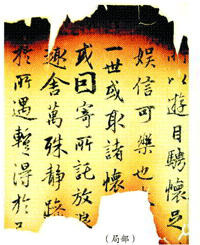 所以遊目騁懷足
娛信可樂也
一世或取諸懷
或因寄所託放浪
趣舍萬殊靜躁
於所遇蹔得於己
(局部)